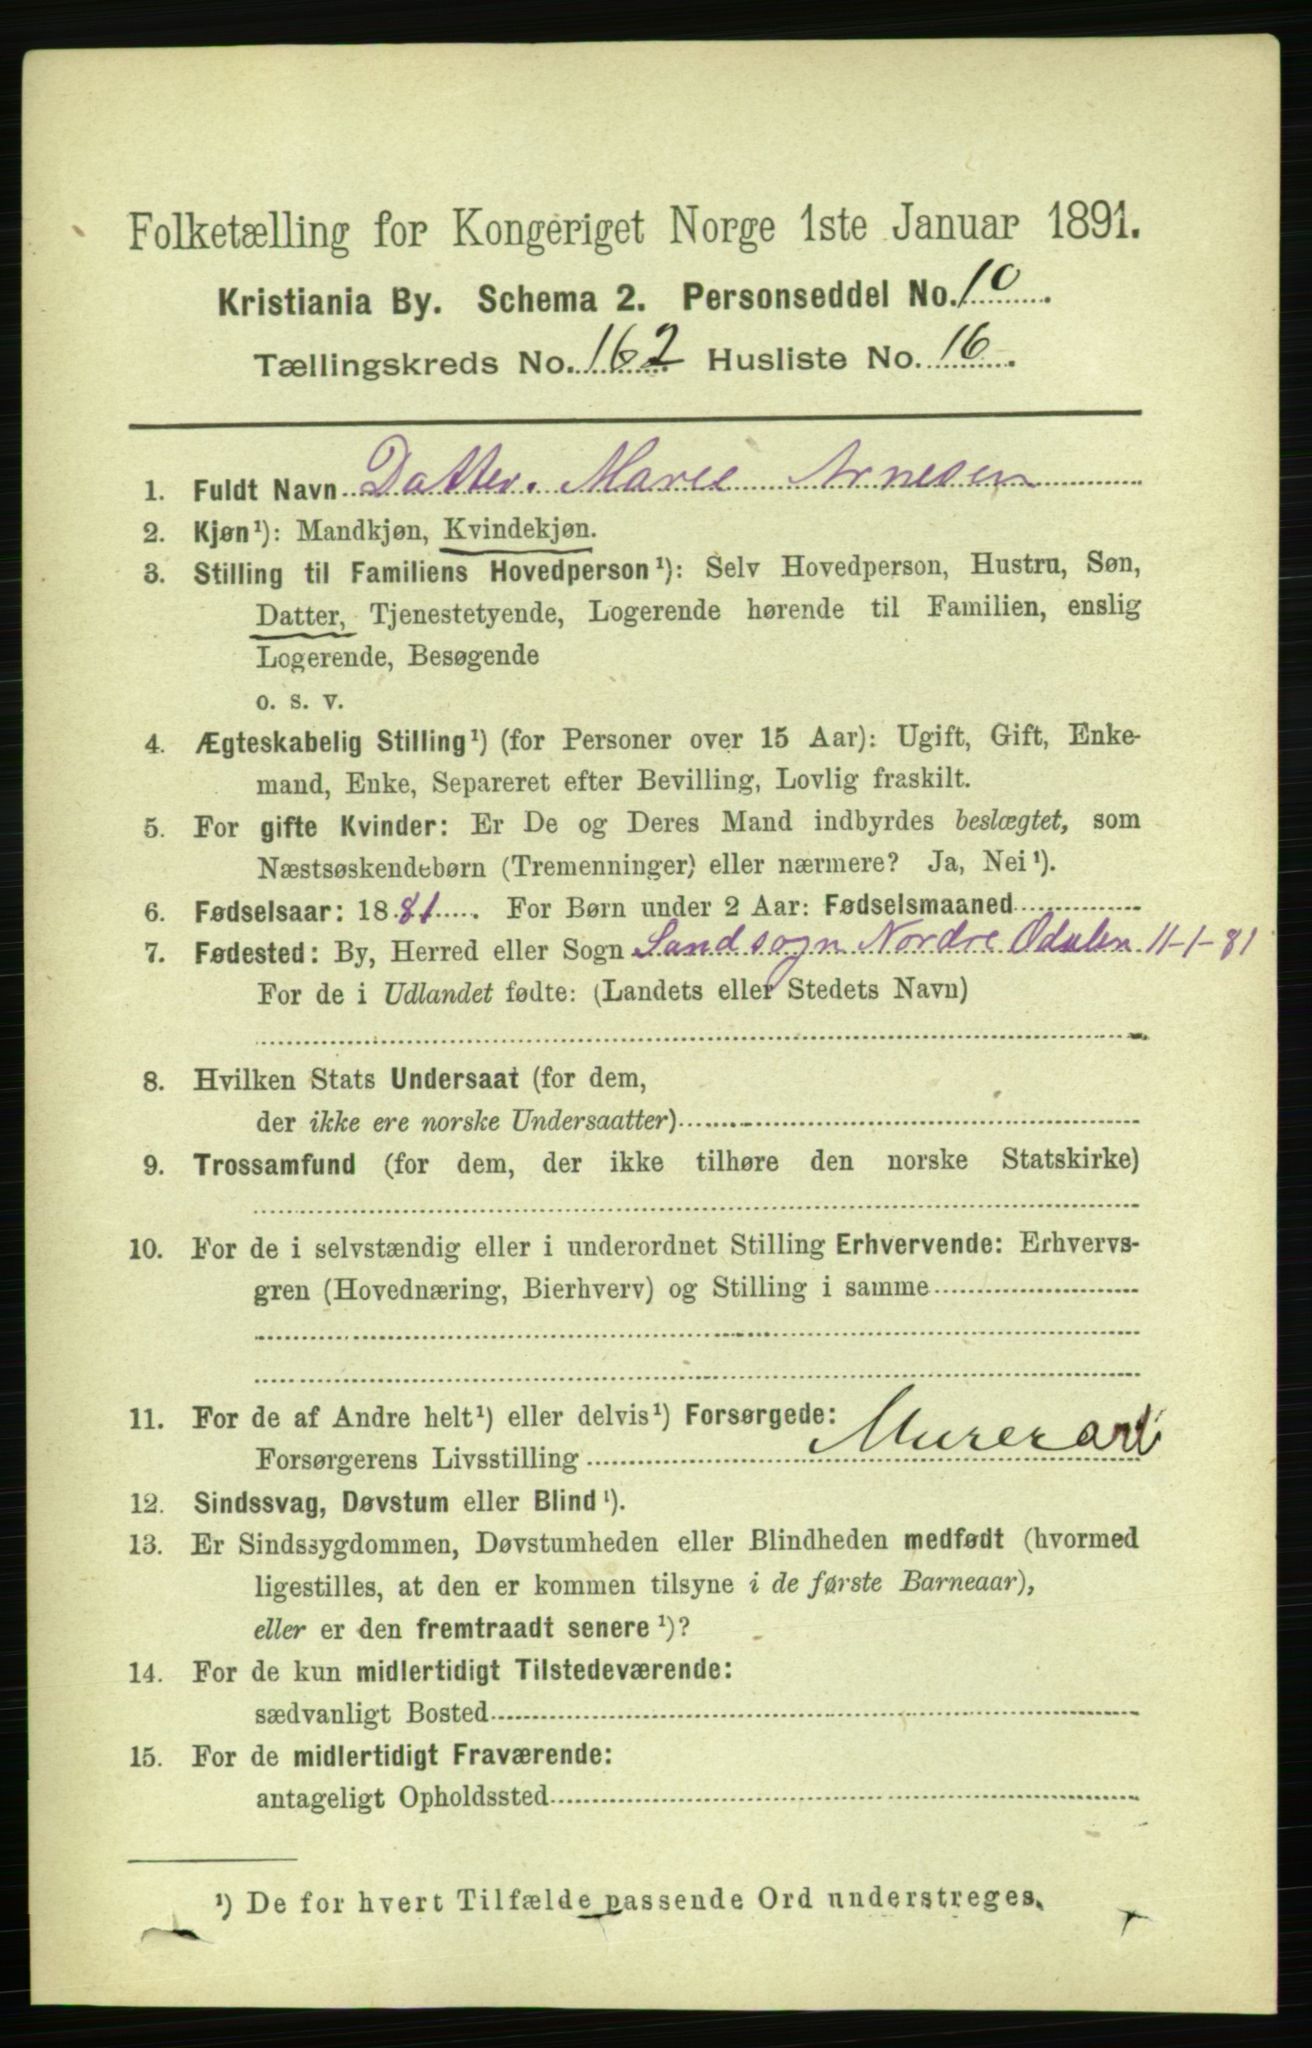 Folketælling for Kongeriget Norge 1ste Januar 1891.
Kristiania By. Schema 2. Personseddel No. 10.
Tællingskreds No. 162 Husliste No. 16.
1. Fuldt Navn Datter. Marie Arnesen
2. Kjøn¹): Mandkjøn, Kvindekjøn.
3. Stilling til Familiens Hovedperson¹): Selv Hovedperson, Hustru, Søn,
Datter, Tjenestetyende, Logerende hørende til Familien, enslig
Logerende, Besøgende
o. s. v.
4. Ægteskabelig Stilling¹) (for Personer over 15 Aar): Ugift, Gift, Enke-
mand, Enke, Separeret efter Bevilling, Lovlig fraskilt.
5. For gifte Kvinder: Er De og Deres Mand indbyrdes beslægtet, som
Næstsøskendebørn (Tremenninger) eller nærmere? Ja, Nei¹).
6. Fødselsaar: 1881. For Børn under 2 Aar: Fødselsmaaned
7. Fødested: By, Herred eller Sogn Sand sogn Nordre Odalen 11-1-81
For de i Udlandet fødte: (Landets eller Stedets Navn)
8. Hvilken Stats Undersaat (for dem,
der ikke ere norske Undersaatter)
9. Trossamfund (for dem, der ikke tilhøre den norske Statskirke)
10. For de i selvstændig eller i underordnet Stilling Erhvervende: Erhvervs-
gren (Hovednæring, Bierhverv) og Stilling i samme
11. For de af Andre helt¹) eller delvis¹) Forsørgede:
Forsørgerens Livsstilling Murerarb
12. Sindssvag, Døvstum eller Blind¹).
13. Er Sindssygdommen, Døvstumheden eller Blindheden medfødt (hvormed
ligestilles, at den er kommen tilsyne i de første Barneaar),
eller er den fremtraadt senere¹)?
14. For de kun midlertidigt Tilstedeværende:
sædvanligt Bosted
15. For de midlertidigt Fraværende:
antageligt Opholdssted
¹) De for hvert Tilfælde passende Ord understreges.